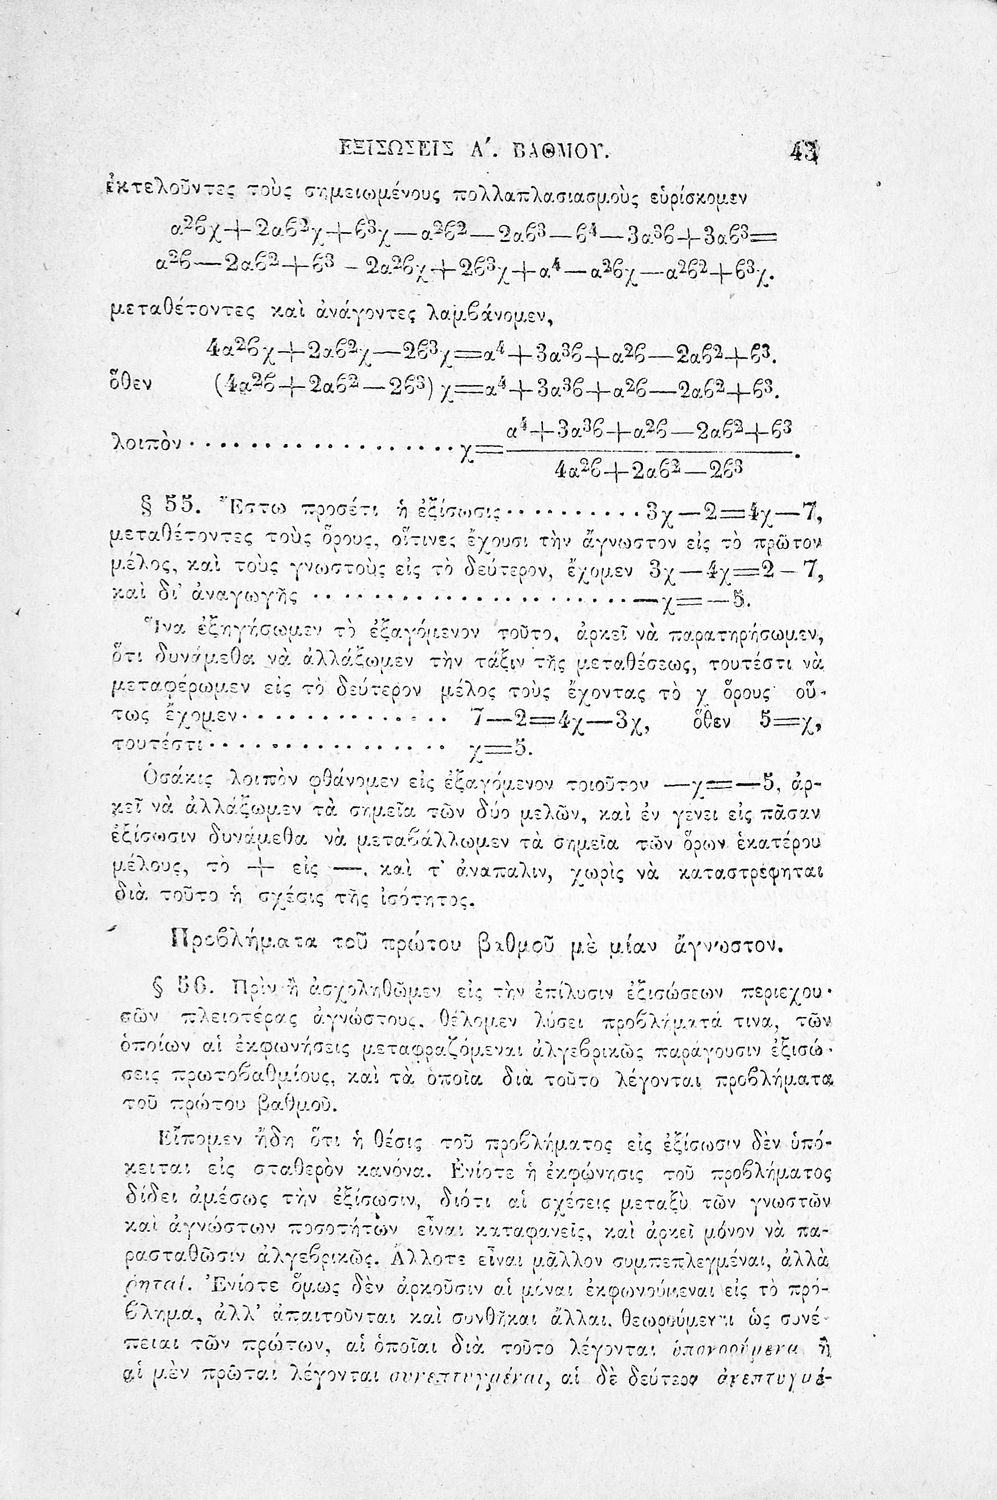 ΕΞΙΣΩΣΕΙΣ Α΄. ΒΑΘΜΟΥ. 43
ἐκτελοῦντες τοὺς σημειωμένους πολλαπλασιασμοὺς εὑρίσκομεν
α²ϐχ+2αϐ²χ+ϐ³χ—α²ϐ²—2αϐ³—ϐ⁴—3α³ϐ+3αϐ³=
α²ϐ—2αϐ²+ϐ³ – 2α²ϐχ+2ϐ³χ+α⁴—α²ϐχ—α²ϐ²+ϐ³χ.
μεταθέτοντες καὶ ἀνάγοντες λαμϐάνομεν,
4α²ϐχ+2αϐ²χ—2ϐ³χ=α⁴+3α³ϐ+α²ϐ—2αϐ²+ϐ³.
ὅθεν (4α²ϐ+2αϐ²—2ϐ³) χ=α⁴+3α³ϐ+α²ϐ—2αϐ²+ϐ³.
λοιπὸν · · · · · · · · · · · · · · · · · χ= α⁴+3α³ϐ+α²ϐ—2αϐ²+ϐ³
4α²ϐ+2αϐ²—2ϐ³ .
§ 55. Ἔστω προσέτι ἡ ἐξίσωσις · · · · · · · · · · 3χ—2=4χ—7,
μεταθέτοντες τοὺς ὅρους, οἵτινες ἔχουσι τὴν ἄγνωστον εἰς τὸ πρῶτον
μέλος, καὶ τοὺς γνωστοὺς εἰς τὸ δεύτερον, ἔχομεν 3χ—4χ=2—7,
καὶ δι' ἀναγωγῆς · · · · · · · · · · · · · · · · · · · · · · —χ=—5.
Ἵνα ἐξηγήσωμεν τὸ ἐξαγόμενον τοῦτο, ἀρκεῖ νὰ παρατηρήσωμεν,
ὅτι δυνάμεθα νὰ ἀλλάξωμεν τὴν τάξιν τῆς μεταθέσεως, τουτέστι νὰ
μεταφέρωμεν εἰς τὸ δεύτερον μέλος τοὺς ἔχοντας τὸ χ ὅρους· οὕ-
τως ἔχομεν · · · · · · · · · · · · · 7—2=4χ—3χ, ὅθεν 5=χ,
τουτέστι · · · · · · · · · · · · · · · χ=5.
Ὁσάκις λοιπὸν φθάνομεν εἰς ἐξαγόμενον τοιοῦτον —χ=—5, ἀρ-
κεῖ νὰ ἀλλάξωμεν τὰ σημεῖα τῶν δύο μελῶν, καὶ ἐν γενει εἰς πᾶσαν
ἐξίσωσιν δυνάμεθα νὰ μεταϐάλλωμεν τὰ σημεῖα τῶν ὅρων ἑκατέρου
μέλους, τὸ + εἰς —, καὶ τ' ἀναπαλιν, χωρὶς νὰ καταστρέφηται
διὰ τοῦτο ἡ σχέσις τῆς ἰσότητος.
Προϐλήματα τοῦ πρώτου βαθμοῦ μὲ μίαν ἄγνωστον.
§ 56. Πρὶν ἢ ἀσχοληθῶμεν εἰς τὴν ἐπίλυσιν ἐξισώσεων περιεχου-
σῶν πλειοτέρας ἀγνώστους, θέλομεν λύσει προϐλήματά τινα, τῶν
ὁποίων αἱ ἐκφωνήσεις μεταφραζόμεναι ἀλγεϐρικῶς παράγουσιν ἐξισώ-
σεις πρωτοϐαθμίους, καὶ τὰ ὁποῖα διὰ τοῦτο λέγονται προϐλήματα
τοῦ πρώτου βαθμοῦ.
Εἴπομεν ἤδη ὅτι ἡ θέσις τοῦ προϐλήματος εἰς ἐξίσωσιν δὲν ὑπό-
κειται εἰς σταθερὸν κανόνα. Ἐνίοτε ἡ ἐκφώνησις τοῦ προϐλήματος
δίδει ἀμέσως τὴν ἐξίσωσιν, διότι αἱ σχέσεις μεταξὺ τῶν γνωστῶν
καὶ ἀγνώστων ποσοτήτων εἶναι καταφανεῖς, καὶ ἀρκεῖ μόνον νὰ πα-
ρασταθῶσιν ἀλγεϐρικῶς. Ἄλλοτε εἶναι μᾶλλον συμπεπλεγμέναι, ἀλλὰ
ῥηταί. Ἐνίοτε ὅμως δὲν ἀρκοῦσιν αἱ μόναι ἐκφωνούμεναι εἰς τὸ πρό-
ϐλημα, ἀλλ' ἀπαιτοῦνται καὶ συνθῆκαι ἄλλαι, θεωρούμεναι ὡς συνέ-
πειαι τῶν πρώτων, αἱ ὁποῖαι διὰ τοῦτο λέγονται ὑπονοούμεναι ἢ
αἱ μὲν πρῶται λέγονται συνεπτυγμέναι, αἱ δὲ δεύτεραι ἀνεπτυγμέ-